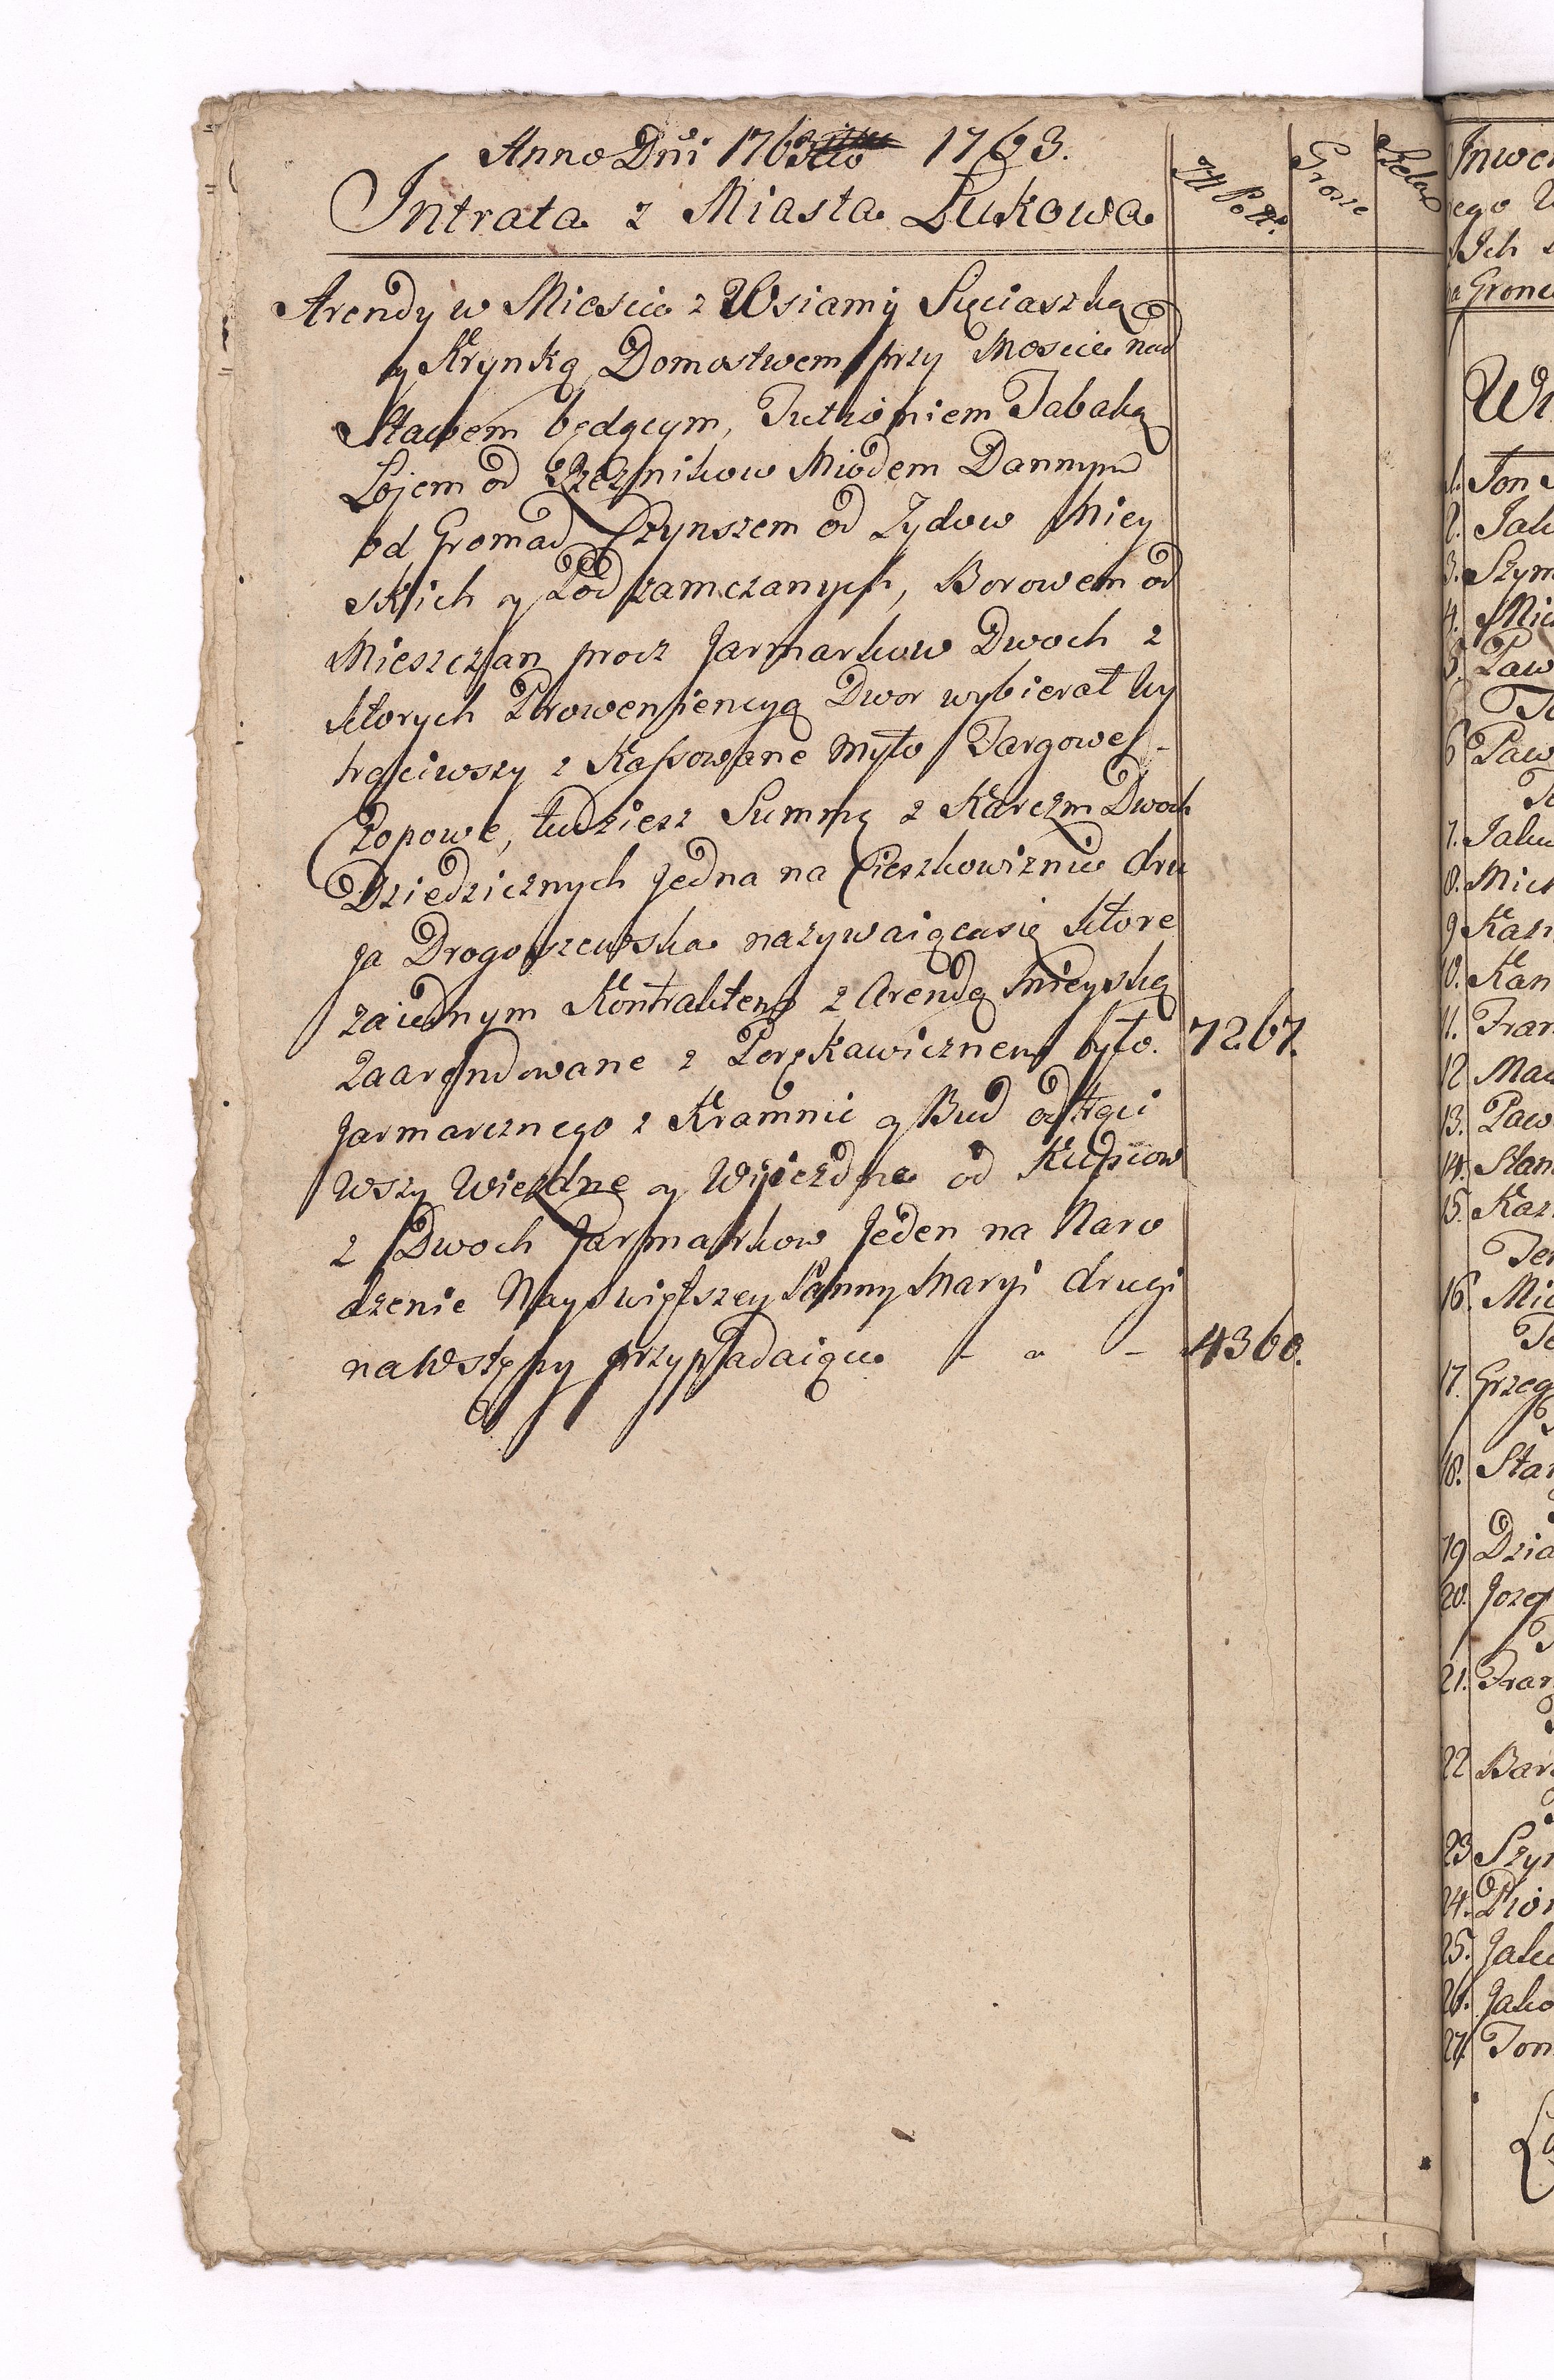 Anno Dñi 1763 1763.
Intrata z Miasta Łukowa
Zł Pols:
Grosze
Szelą
Arendy w Miescie z Wsiamy Sięciaszką
y Krynką Domostwem przy Moscie nad
Stawem będącym, Tutuniem Tabaką
Łojem od Rzeznikow Miodem Dannym
od Gromad Czynszem od Zydow Miey
skich y Podzamczanych, Borowem od
Mieszczan procz Jarmarkow Dwoch z
ktorych Prowenïencyą Dwor wybierał wy
trąciwszy z Kassowane Myto Targowe
Kopowe, tudziesz Summę z Karczm Dwoch
Dziedzicznych Jedna na Cieszkowiznie dru
ga Drogoszewska nazywaiącasię ktore
za iednym Kontraktem z Arendą Mieyską
Zaarendowane z Porękawicznem było. 7267.
Jarmarcznego z Kramnic y Bud odtrąci
wszy Wiezdne y Wyiezdne od Kupcow
z Dwoch Jarmarkow Jeden na Naro
dzenie Nayswiętszey Panny Maryi drugi
na Wstępny przypadaiące - - - 4360.
Inwen
ego
Ich
Grone
1. Tom
2. Jak
3. Szym
4. Mic
5. Paw
6 Paw
7. Jaku
8. Mich
9 Kazi
10. Kan
11. Fran
12 Mac
13. Paw
14. Stan
15. Kaz
16. Mic
17. Grzeg
18. Stan
19 Dzia
20. Joze
21. Fran
22 Bar
23 Szym
24. Pio
25. Jaku
26. Jako
27. Tom